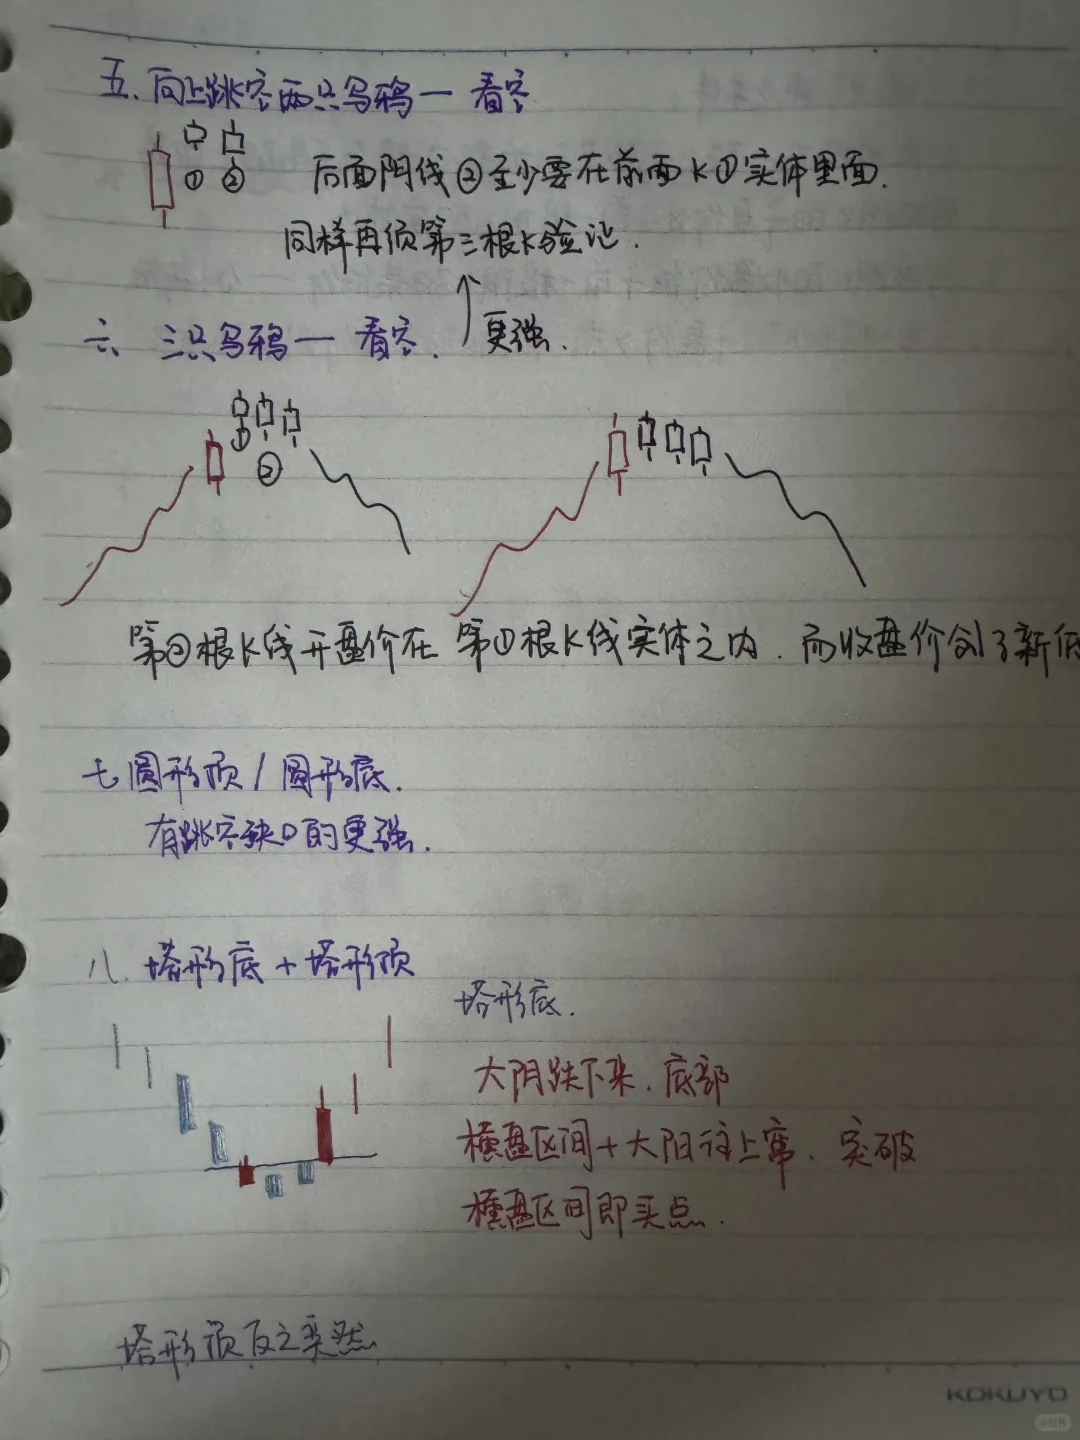 五、向上跳空两只乌鸦一 看空
① ② 后面阴线②至少要在前面K①实体里面.
同样再须第三根K验记.
六 三只乌鸦一 看空. 更强.
① ②
第②根K线开盘价在 第①根K线实体之内. 而收盘价创了新低
七 圆形顶/圆形底.
有跳空缺口的更强.
八. 塔形底+塔形顶
塔形底.
大阴跌下来. 底部
横盘区间+大阳往上窜. 突破
横盘区间即买点.
塔形顶反之亦然
KOKUYO
小红书